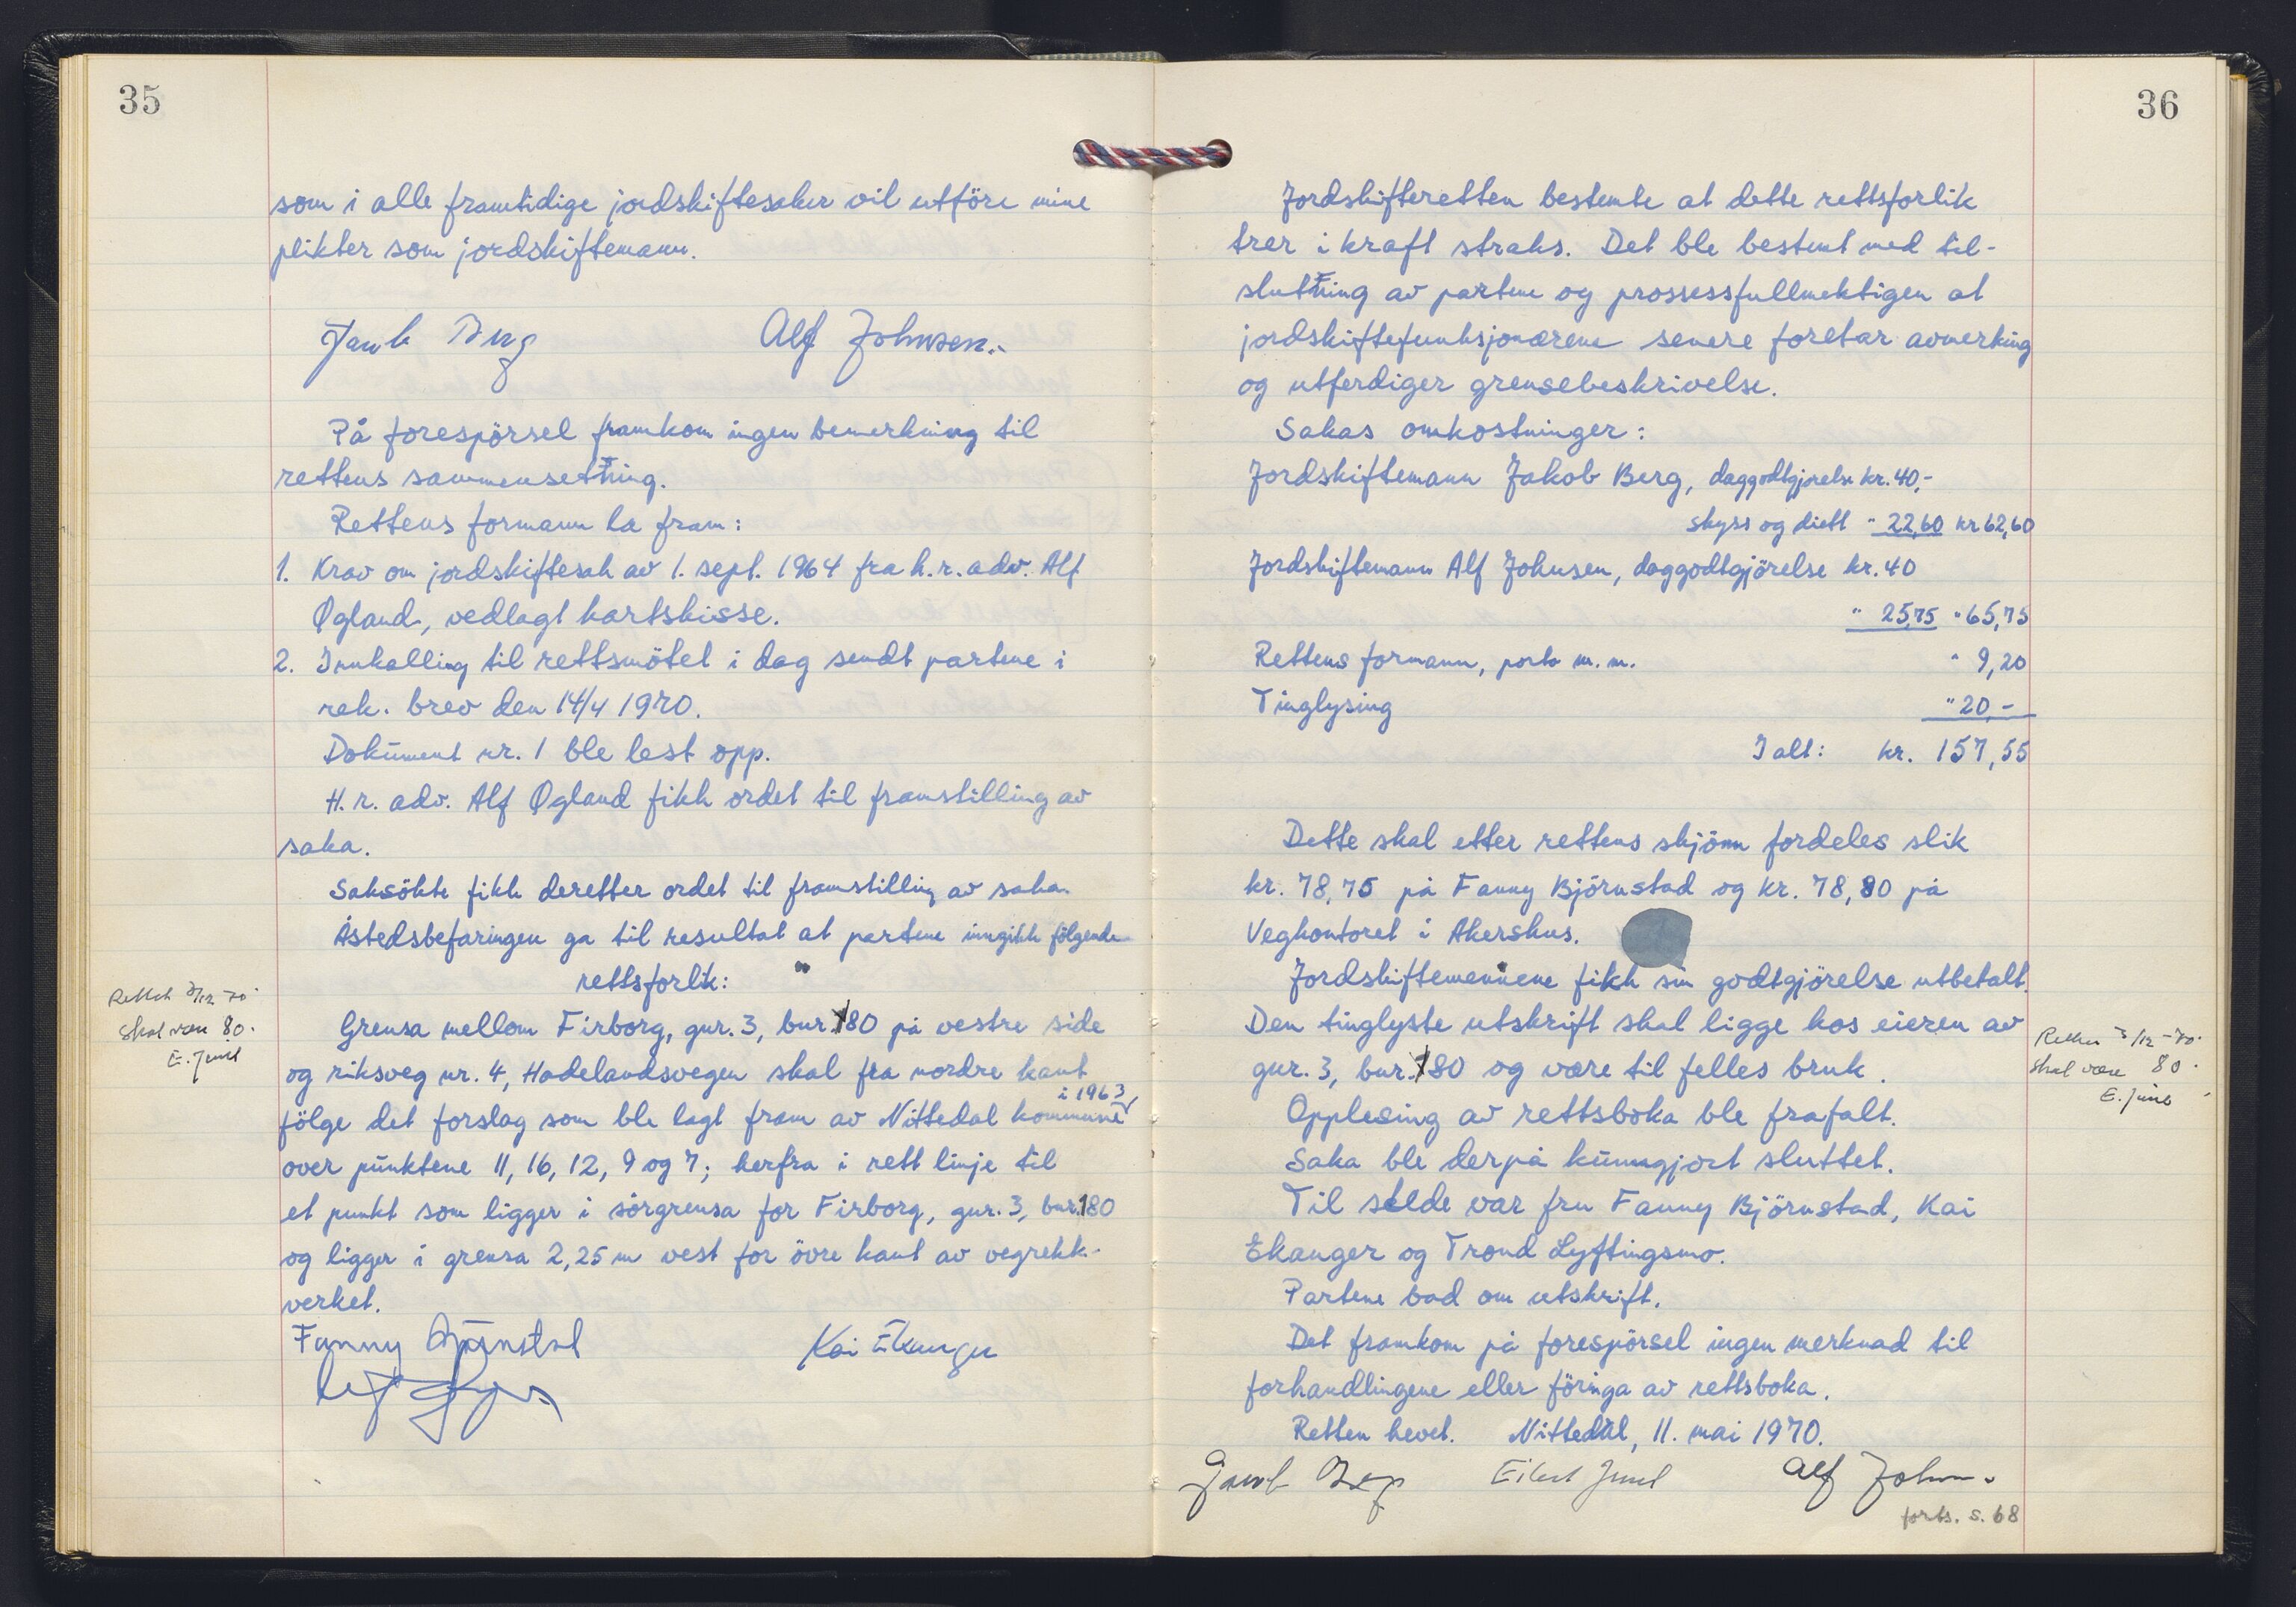 35
som i alle framtidige jordskiftesaker vil utföre mine
plikter som jordskiftemann.
Jacob Berg Alf Johnsen.
På forespörsel framkom ingen bemerkning til
rettens sammensetning.
Rettens formann la fram:
1. Krav om jordskiftesak av 1. sept. 1964 fra h.r.adv. Alf
Øgland, vedlagt kartskisse.
2. Innkalling til rettsmötet i dag sendt partene i
rek. brev den 14/4 1970.
Dokument nr. 1 ble lest opp.
H.r. adv. Alf Øgland fikk ordet til framstilling av
saka.
Saksökte fikk deretter ordet til framstilling av saka.
Åstedsbefaringen ga til resultat at partene inngikk fölgende
rettsforlik:
Rettet 3/12-70.
Skal være 80.
E. Juul
Grensa mellom Firborg, gnr. 3, bnr. 180 på vestre side
og riksveg nr. 4, Hadelandsvegen skal fra nordre kant
i 1963
fölge det forslag som ble lagt fram av Nittedal kommune
over punktene 11, 16, 12, 9 og 7; herfra i rett linje til
et punkt som ligger i sörgrensa for Firborg, gnr. 3, bnr. 180
og ligger i grensa 2,25 m vest for övre kant av vegrekk-
verket.
Fanny Björnstad Kai Ekanger
36
Jordskifteretten bestemte at dette rettsforlik
trer i kraft straks. Det ble bestemt med til-
slutning av partene og prossessfullmektigen at
jordskiftefunksjonærene senere foretar avmerking
og utferdiger grensebeskrivelse.
Sakas omkostninger:
Jordskiftemann Jakob Berg, daggodtgjørelse kr. 40,-
skyss og diett " 22,60 kr 62,60
Jordskiftemann Alf Johnsen, daggodtgjörelse kr. 40
" 25,75 " 65,75
Rettens formann, porto m.m. " 9,20
Tinglysing " 20,-
I alt: kr. 157,55
Dette skal etter rettens skjönn fordeles slik
kr. 78,75 på Fanny Björnstad og kr. 78,80 på
Vegkontoret i Akershus.
Jordskiftemennene fikk sin godtgjörelse utbetalt.
Den tinglyste utskrift skal ligge hos eieren av
gnr. 3, bnr. 180 og være til felles bruk.
Rettet 3/12-70.
Skal være 80.
E. Juul
Opplesing av rettsboka ble frafalt.
Saka ble derpå kunngjort sluttet.
Til stede var fru Fanny Björnstad, Kai
Ekanger og Trond Lyftingsmo.
Partene bad om utskrift.
Det framkom på forespörsel ingen merknad til
forhandlingene eller föringa av rettsboka.
Retten hevet. Nittedal, 11. mai 1970.
Jacob Berg Eilert Juul Alf Johnsen
forts. s. 68